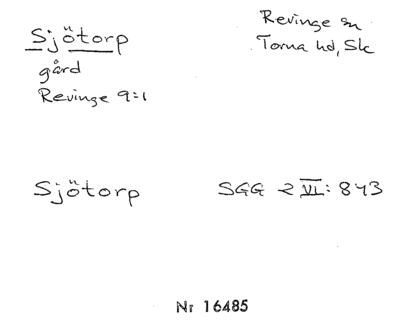 Sjötorp
gård
Revinge 9:1
Revinge sn
Torna hd, Sk
Sjötorp
SGG 2 VI: 843
Nr 16485